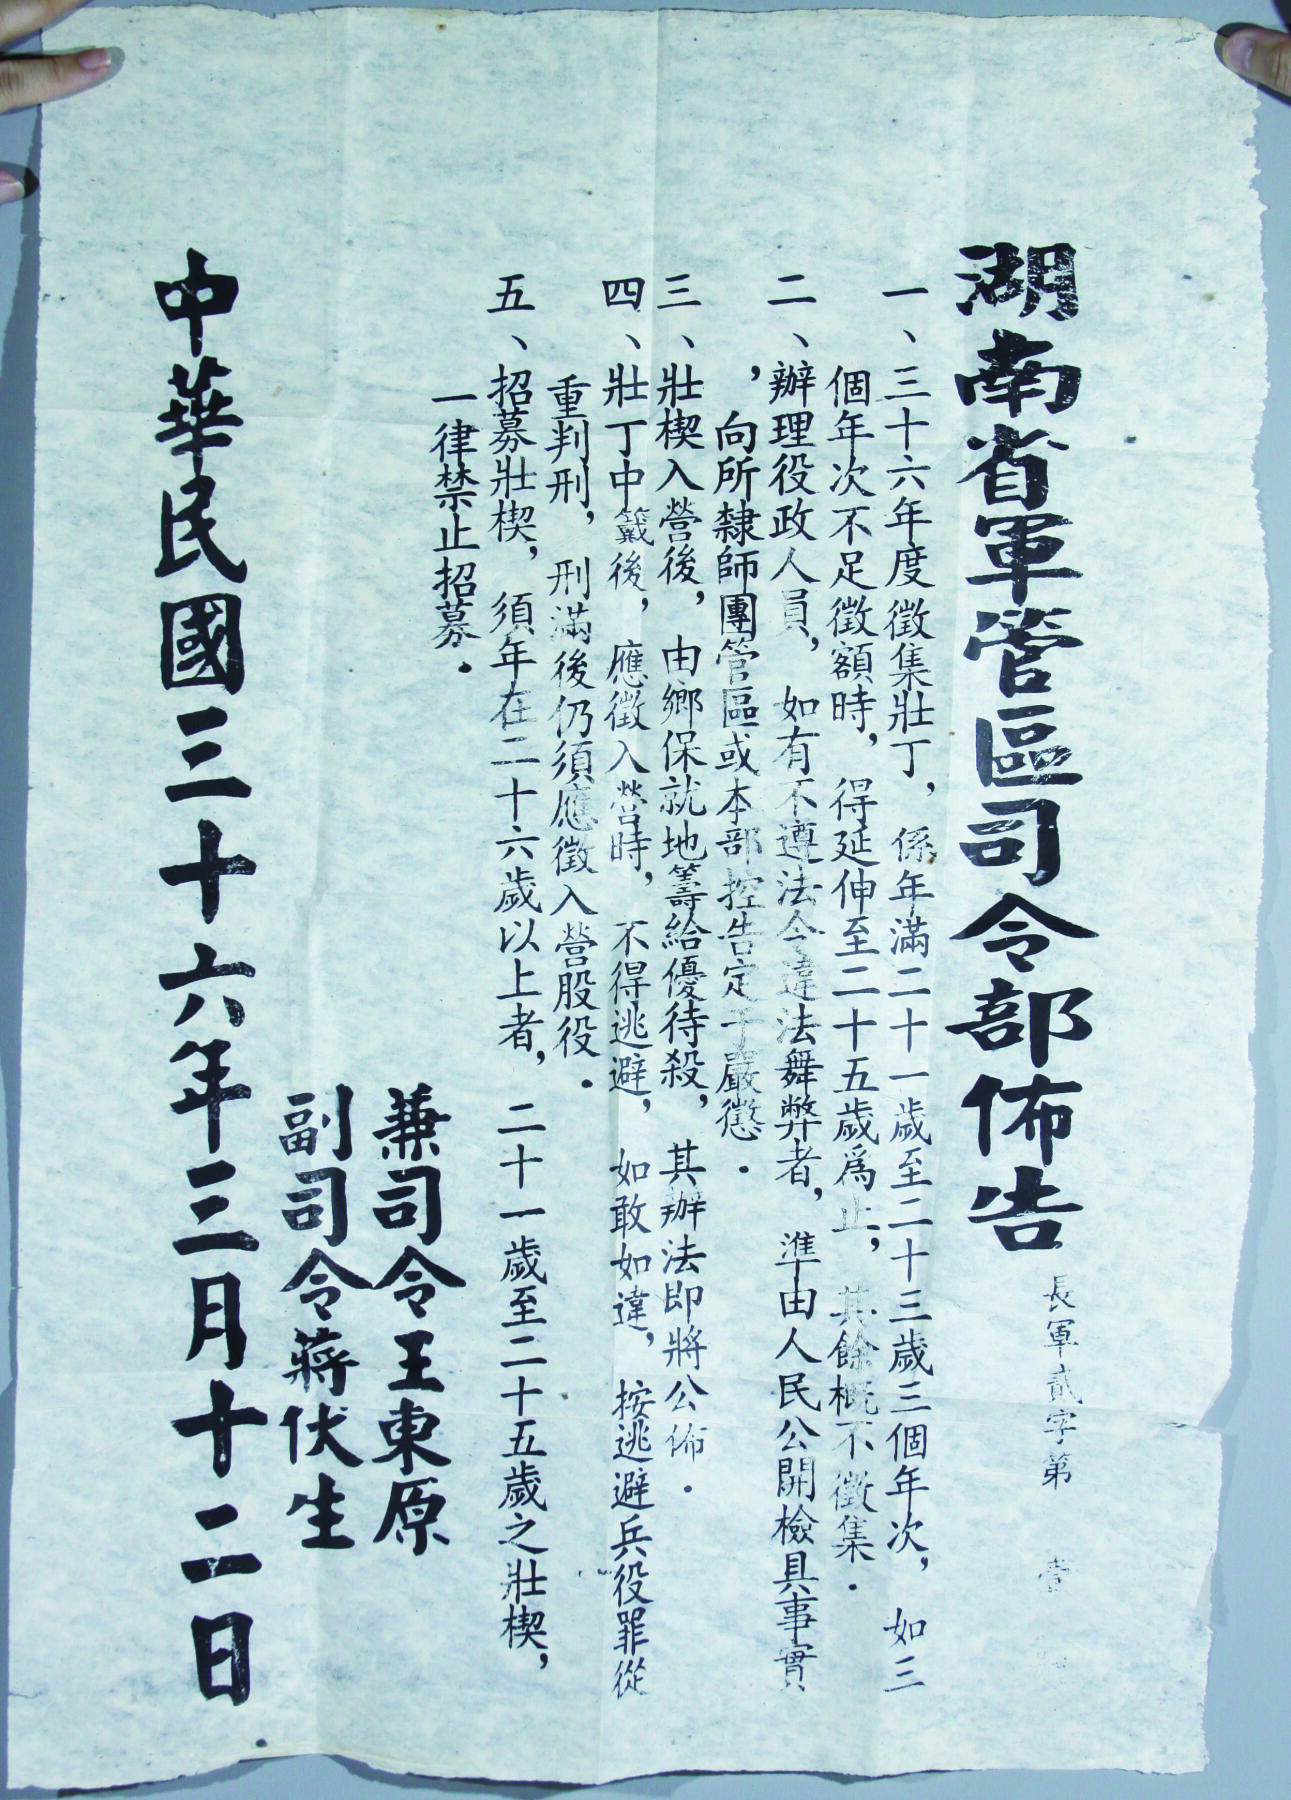 湖南省軍管區司令部佈告
長軍貳字第 壹
一、三十六年度徵集壯丁，係年滿二十一歲至二十三歲三個年次，如三
個年次不足徵額時，得延伸至二十五歲爲止，其餘概不徵集．
二、辦理役政人員，如有不遵法令違法舞弊者，準由人民公開檢具事實
，向所隸師團管區或本部控告定予嚴懲．
三、壯楔入營後，由鄉保就地籌給優待殺，其辦法即將公佈．
四、壯丁中籤後，應徵入營時，不得逃避，如敢如違，按逃避兵役罪從
重判刑，刑滿後仍須應徵入營股役．
五、招募壯楔，須年在二十六歲以上者，二十一歲至二十五歲之壯楔，
一律禁止招募．
兼司令王東原
副司令蔣伏生
中華民國三十六年三月十二日